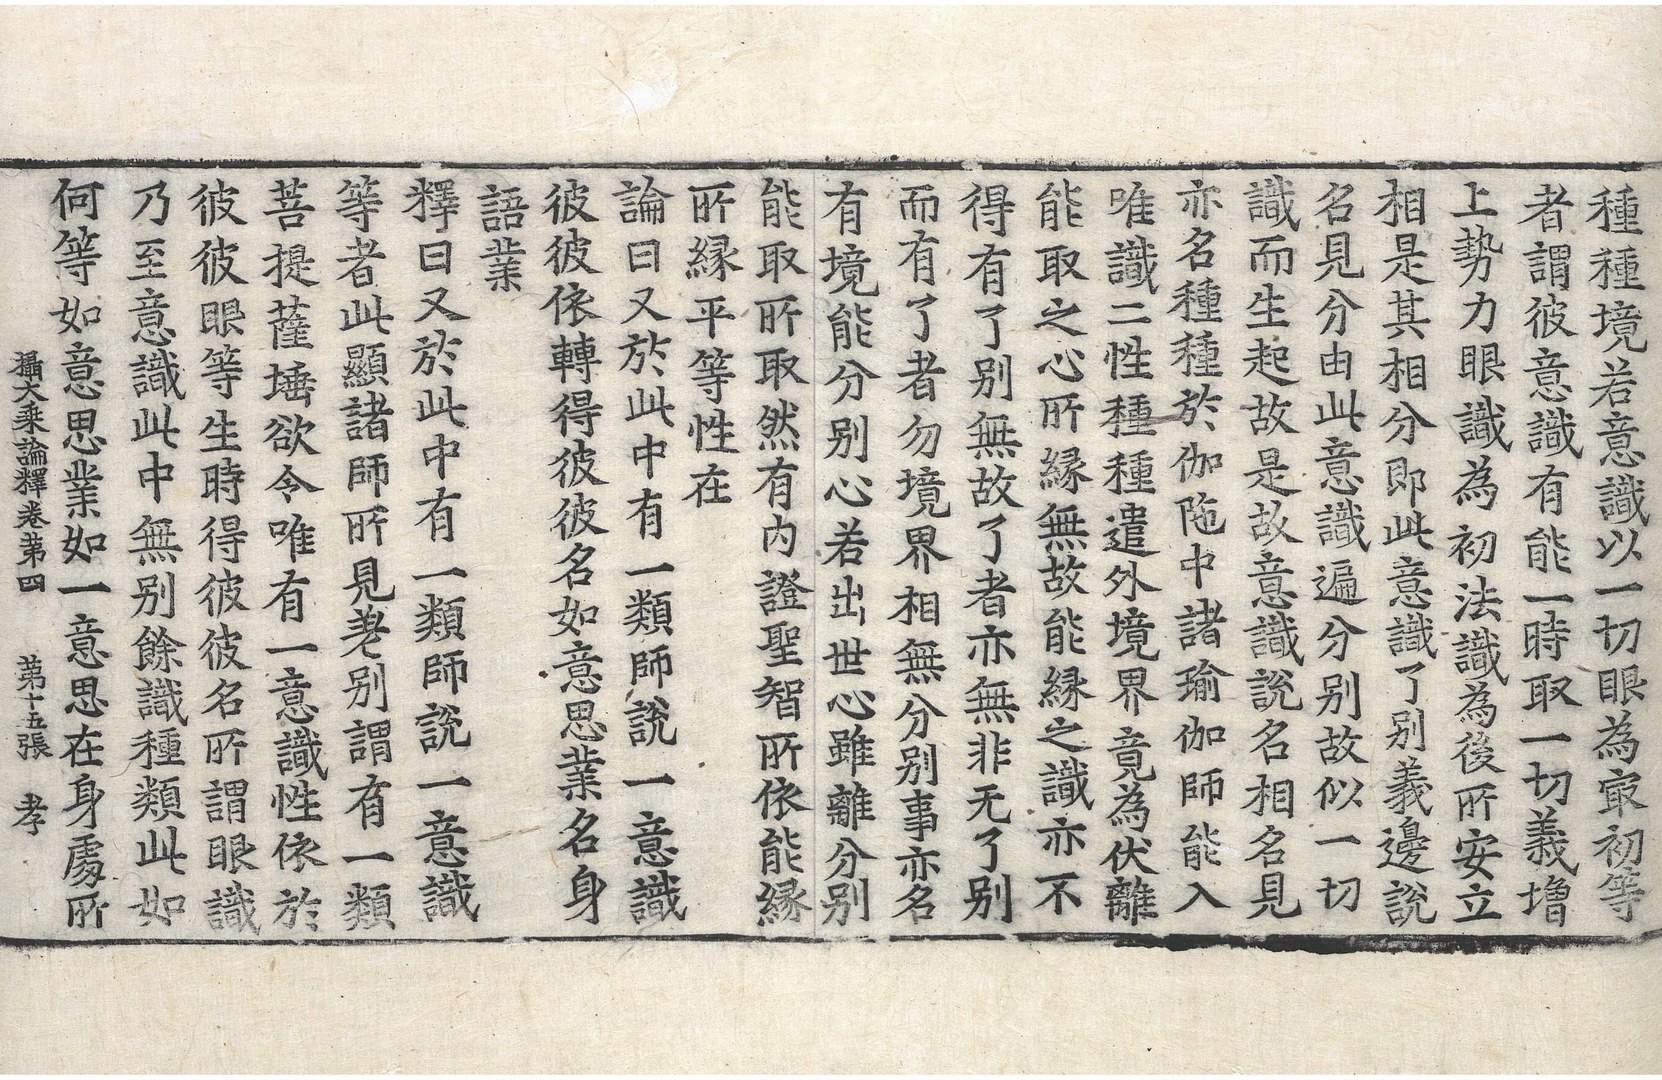 種種境若意識以一切眼為㝡初等
者謂彼意識有能一時取一切義增
上勢力眼識為初法識為後所安立
相是其相分即此意識了別義邊說
名見分由此意識遍分別故似一切
識而生起故是故意識說名相名見
亦名種種於伽陁中諸瑜伽師能入
唯識二性種種遣外境界竟為伏離
能取之心所縁無故能縁之識亦不
得有了別無故了者亦無非无了別
而有了者勿境界相無分別事亦名
有境能分別心若出世心雖離分別
能取所取然有內證聖智所依能縁
所縁平等性在
論曰又於此中有一類師說一意識
彼彼依轉得彼彼名如意思業名身
語業
釋曰又於此中有一類師說一意識
等者此顯諸師所見差別謂有一類
菩提薩埵欲令唯有一意識性依於
彼彼眼等生時得彼彼名所謂眼識
乃至意識此中無別餘識種類此如
何等如意思業如一意思在身處所
攝大乘論釋卷第四 第十五張 孝